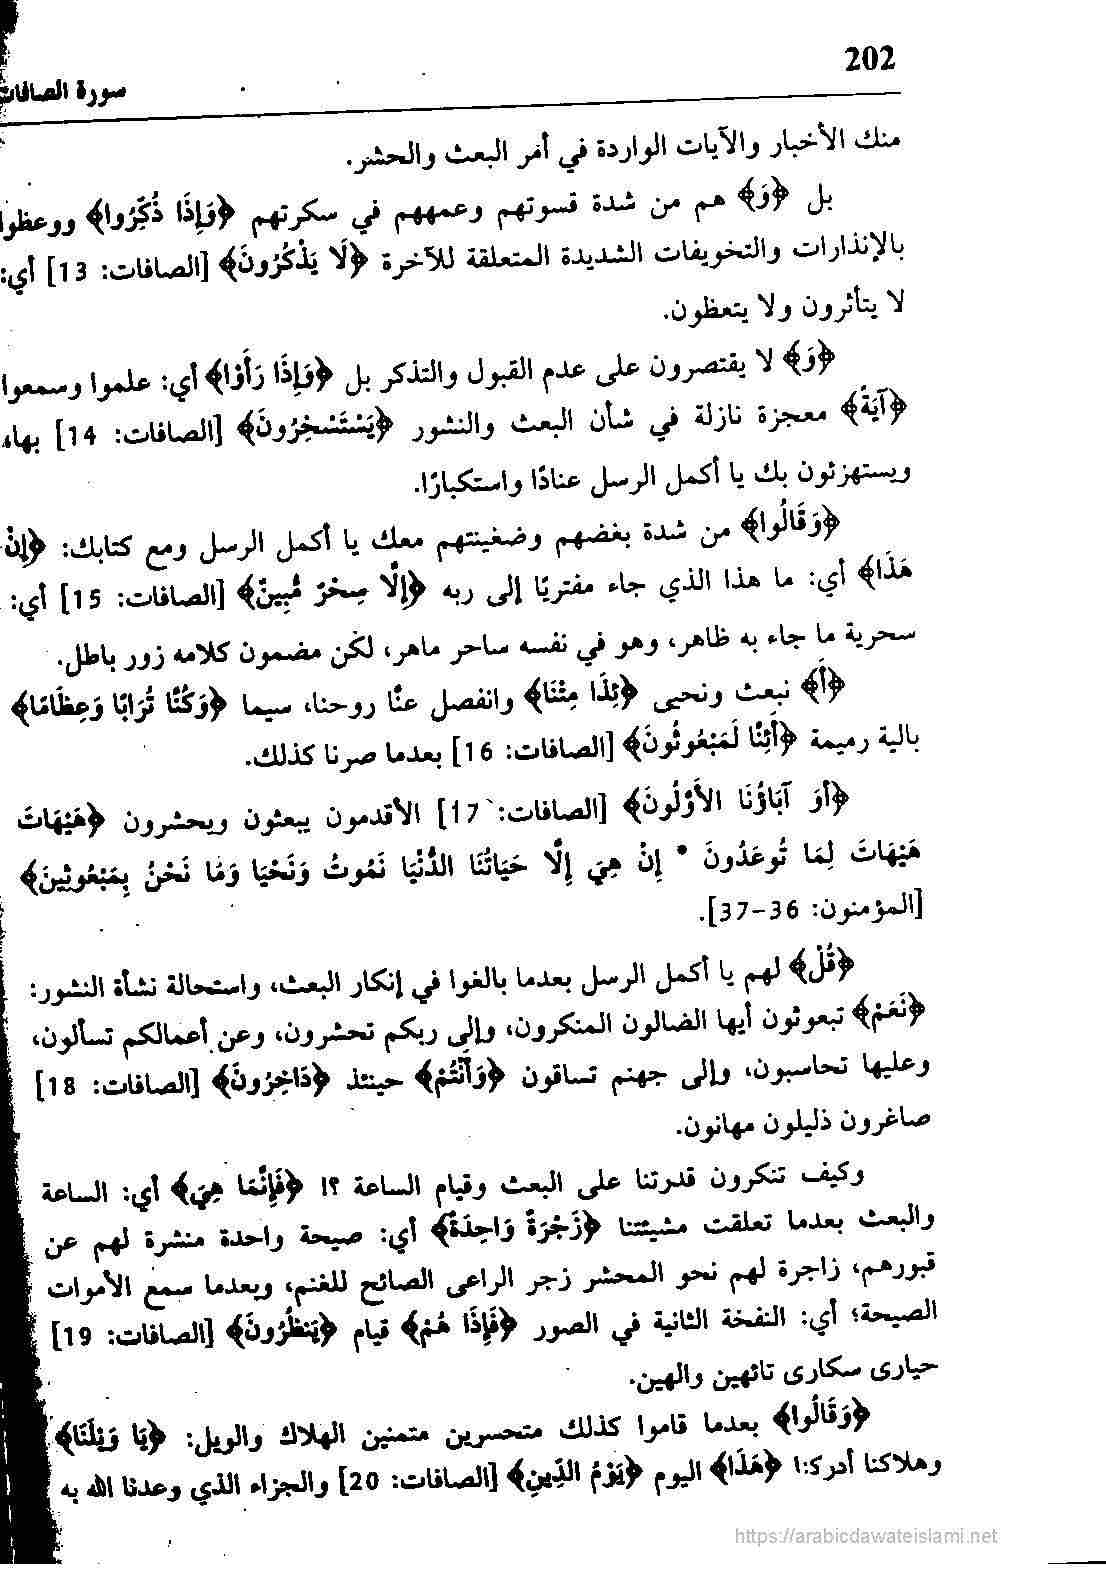 202
سورة الصافات
منك الأخبار والآيات الواردة في أمر البعث والحشر.
بل ﴿وَ﴾ هم من شدة قسوتهم وعمههم في سكرتهم ﴿وَإِذَا ذُكِّرُوا﴾ ووعظوا
بالإنذارات والتخويفات الشديدة المتعلقة للآخرة ﴿لَا يَذْكُرُونَ﴾ [الصافات: 13] أي:
لا يتأثرون ولا يتعظون.
﴿وَ﴾ لا يقتصرون على عدم القبول والتذكر بل ﴿وَإِذَا رَأَوْا﴾ أي: علموا وسمعوا
﴿آيَةً﴾ معجزة نازلة في شأن البعث والنشور ﴿يَسْتَسْخِرُونَ﴾ [الصافات: 14] بها،
ويستهزئون بك يا أكمل الرسل عنادًا واستكبارًا.
﴿وَقَالُوا﴾ من شدة بغضهم وضغينتهم معك يا أكمل الرسل ومع كتابك: ﴿إِنْ
هَذَا﴾ أي: ما هذا الذي جاء مفتريًا إلى ربه ﴿إِلَّا سِحْرٌ مُّبِينٌ﴾ [الصافات: 15] أي:
سحرية ما جاء به ظاهر، وهو في نفسه ساحر ماهر، لكن مضمون كلامه زور باطل.
﴿أَ﴾ نبعث ونحيى ﴿ئِذَا مِتْنَا﴾ وانفصل عنَّا روحنا، سيما ﴿وَكُنَّا تُرَابًا وَعِظَامًا﴾
بالية رميمة ﴿أَئِنَّا لَمَبْعُوثُونَ﴾ [الصافات: 16] بعدما صرنا كذلك.
﴿أَوَ آبَاؤُنَا الأَوَّلُونَ﴾ [الصافات: 17] الأقدمون يبعثون ويحشرون ﴿هَيْهَاتَ
هَيْهَاتَ لِمَا تُوعَدُونَ * إِنْ هِيَ إِلَّا حَيَاتُنَا الدُّنْيَا نَمُوتُ وَنَحْيَا وَمَا نَحْنُ بِمَبْعُوثِينَ﴾
[المؤمنون: 36-37].
﴿قُلْ﴾ لهم يا أكمل الرسل بعدما بالغوا في إنكار البعث، واستحالة نشأة النشور:
﴿نَعَمْ﴾ تبعوثون أيها الضالون المنكرون، وإلى ربكم تحشرون، وعن أعمالكم تسألون،
وعليها تحاسبون، وإلى جهنم تساقون ﴿وَأَنْتُمْ﴾ حينئذ ﴿دَاخِرُونَ﴾ [الصافات: 18]
صاغرون ذليلون مهانون.
وكيف تنكرون قدرتنا على البعث وقيام الساعة ؟! ﴿فَإِنَّمَا هِيَ﴾ أي: الساعة
والبعث بعدما تعلقت مشيئتنا ﴿زَجْرَةٌ وَاحِدَةٌ﴾ أي: صيحة واحدة منشرة لهم عن
قبورهم، زاجرة لهم نحو المحشر زجر الراعى الصائح للغنم، وبعدما سمع الأموات
الصيحة؛ أي: النفخة الثانية في الصور ﴿فَإِذَا هُمْ﴾ قيام ﴿يَنظُرُونَ﴾ [الصافات: 19]
حيارى سكارى تائهين والهين.
﴿وَقَالُوا﴾ بعدما قاموا كذلك متحسرين متمنين الهلاك والويل: ﴿يَا وَيْلَنَا﴾
وهلاكنا أدركنا ﴿هَذَا﴾ اليوم ﴿يَوْمُ الدِّينِ﴾ [الصافات: 20] والجزاء الذي وعدنا الله به
https://arabicdawateislami.net